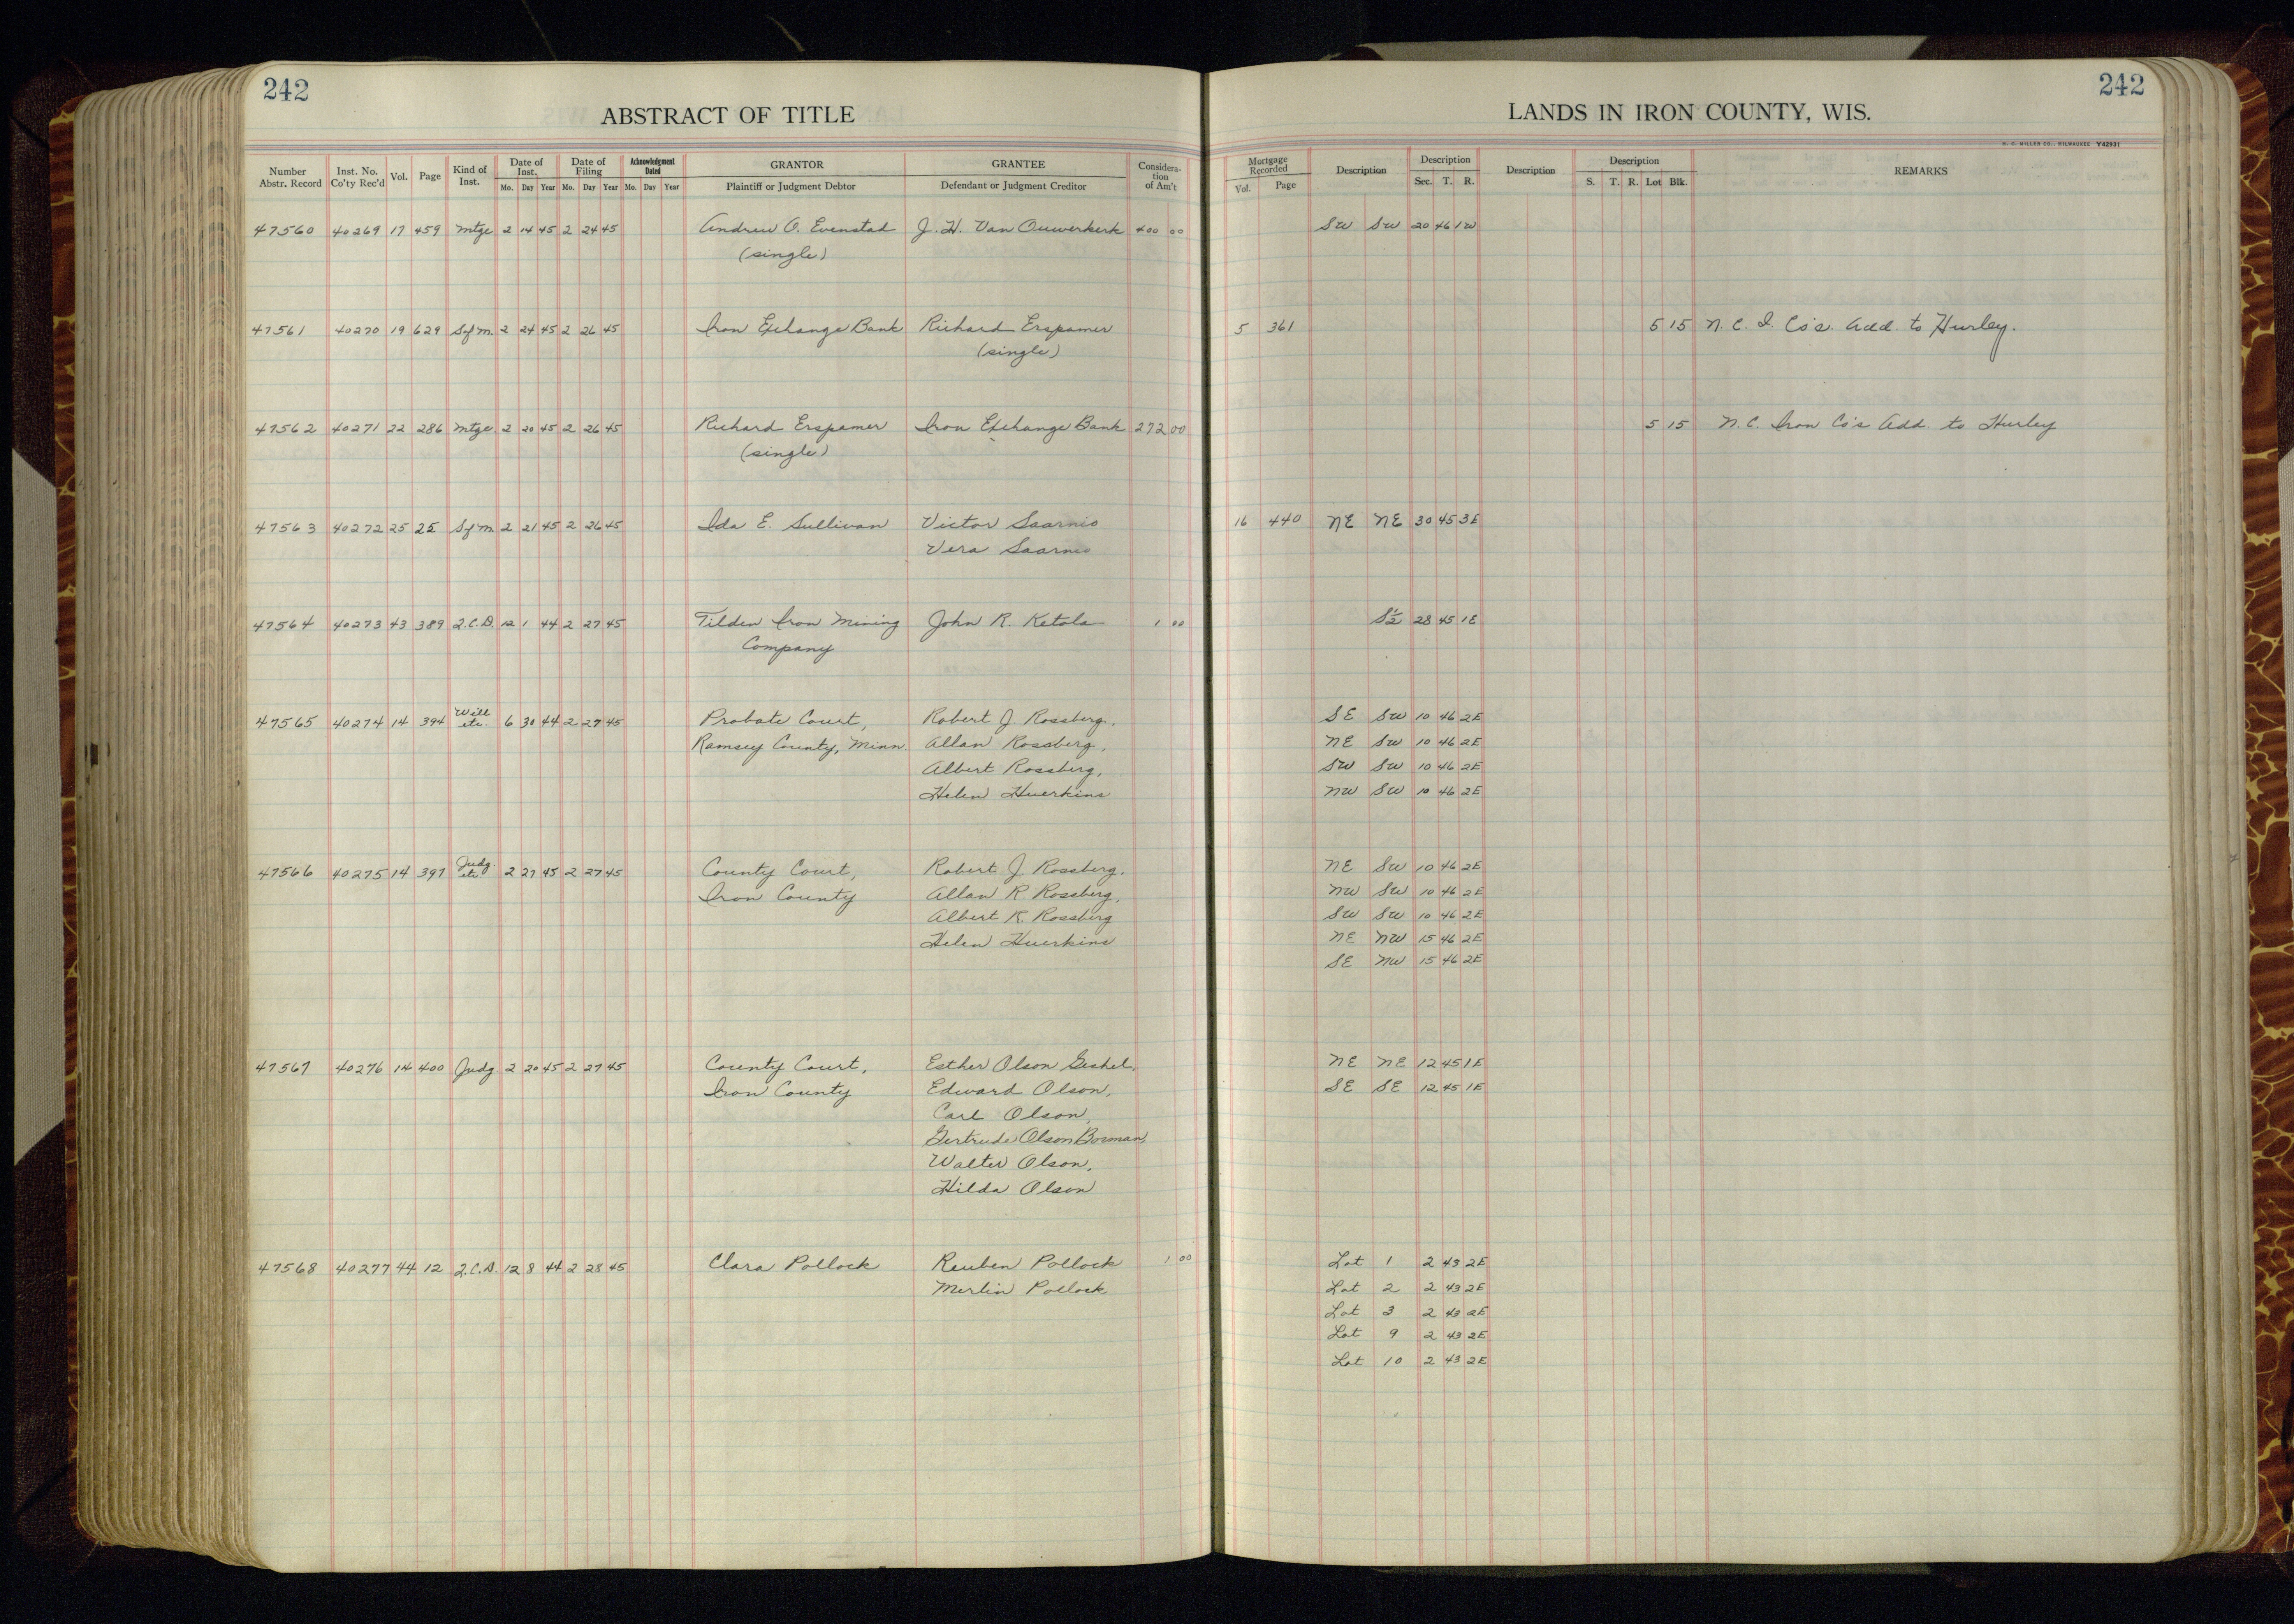 242
242
ABSTRACT OF TITLE
LANDS IN IRON COUNTY, WIS.
H. C. MILLER CO., MILWAUKEE Y42931
Number Abstr. Record Inst. No. Co'ty Rec'd Vol. Page Kind of Inst. Date of Inst. Mo. Day Year Date of Filing Mo. Day Year Acknowledgment Dated Mo. Day Year GRANTOR Plaintiff or Judgment Debtor GRANTEE Defendant or Judgment Creditor Considera-tion of Am't Mortgage Recorded Vol. Page Description Description Sec. T. R. Description Description S. T. R. Lot Blk. REMARKS
47560 40269 17 459 Mtge 2 14 45 2 24 45 Andrew O. Evenstad J. H. Van Ouwerkerk 400 00 SW SW 20 46 1W
(single)
47561 40270 19 629 Sofm. 2 24 45 2 26 45 Iron Exchange Bank Richard Erspamer 5 361 5 15 N. C. I. Co's. Add. to Hurley.
(single)
47562 40271 22 286 Mtge. 2 20 45 2 26 45 Richard Erspamer Iron Exchange Bank 272 00 5 15 N. C. Iron Co's Add. to Hurley
(single)
47563 40272 25 25 Sofm. 2 21 45 2 26 45 Ida E. Sullivan Victor Saarnio 16 440 NE NE 30 45 3E
Vera Saarnio
47564 40273 43 389 Q.C.D. 12 1 44 2 27 45 Tilden Iron Mining John R. Ketola 1 00 S½ 28 45 1E
Company
47565 40274 14 394 Will etc. 6 30 44 2 27 45 Probate Court, Robert J. Rossberg, SE SW 10 46 2E
Ramsey County, Minn. Allan Rossberg, NE SW 10 46 2E
Albert Rossberg, SW SW 10 46 2E
Helen Huerkins NW SW 10 46 2E
47566 40275 14 397 Judg. etc. 2 27 45 2 27 45 County Court, Robert J. Rossberg, NE SW 10 46 2E
Iron County Allan R. Rossberg, NW SW 10 46 2E
Albert K. Rossberg SW SW 10 46 2E
Helen Huerkins NE NW 15 46 2E
SE NW 15 46 2E
47567 40276 14 400 Judg 2 20 45 2 27 45 County Court, Esther Olson Geshel, NE NE 12 45 1E
Iron County Edward Olson, SE SE 12 45 1E
Carl Olson,
Gertrude Olson Borman,
Walter Olson,
Hilda Olson
47568 40277 44 12 Q.C.D. 12 8 44 2 28 45 Clara Pollock Reuben Pollock 1 00 Lot 1 2 43 2E
Merlin Pollock Lot 2 2 43 2E
Lot 3 2 43 2E
Lot 9 2 43 2E
Lot 10 2 43 2E